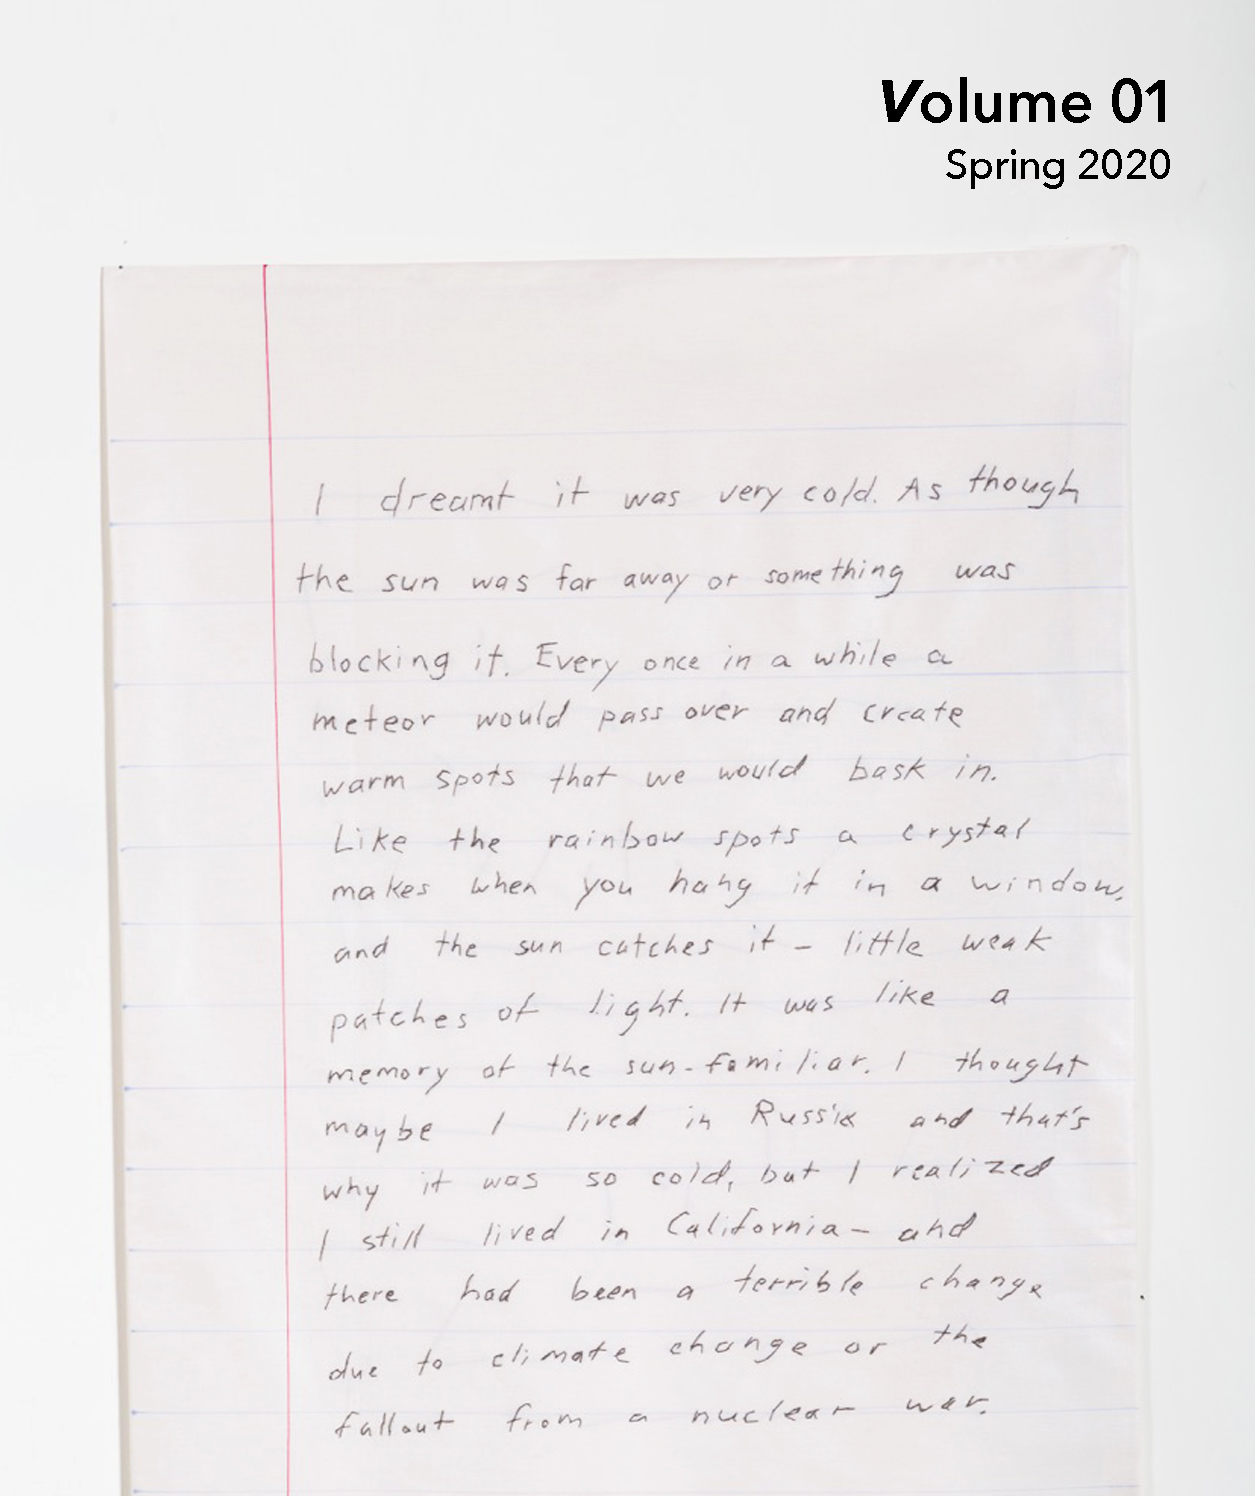 Volume 01
Spring 2020
I dreamt it was very cold. As though
the sun was far away or something was
blocking it. Every once in a while a
meteor would pass over and create
warm spots that we would bask in.
Like the rainbow spots a crystal
makes when you hang it in a window,
and the sun catches it – little weak
patches of light. It was like a
memory of the sun-familiar. I thought
maybe I lived in Russia and that's
why it was so cold, but I realized
I still lived in California – and
there had been a terrible change
due to climate change or the
fallout from a nuclear war.